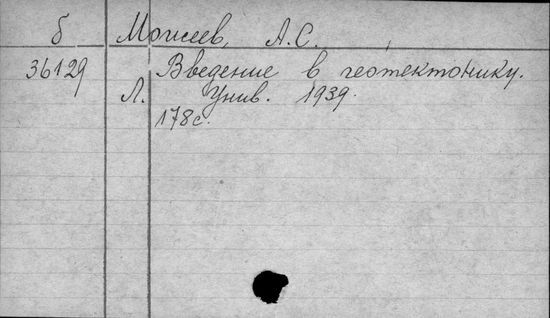 б Моисеев, А.С.
36129 Введение в геотектонику.
Л. Унив. 1939.
178с.